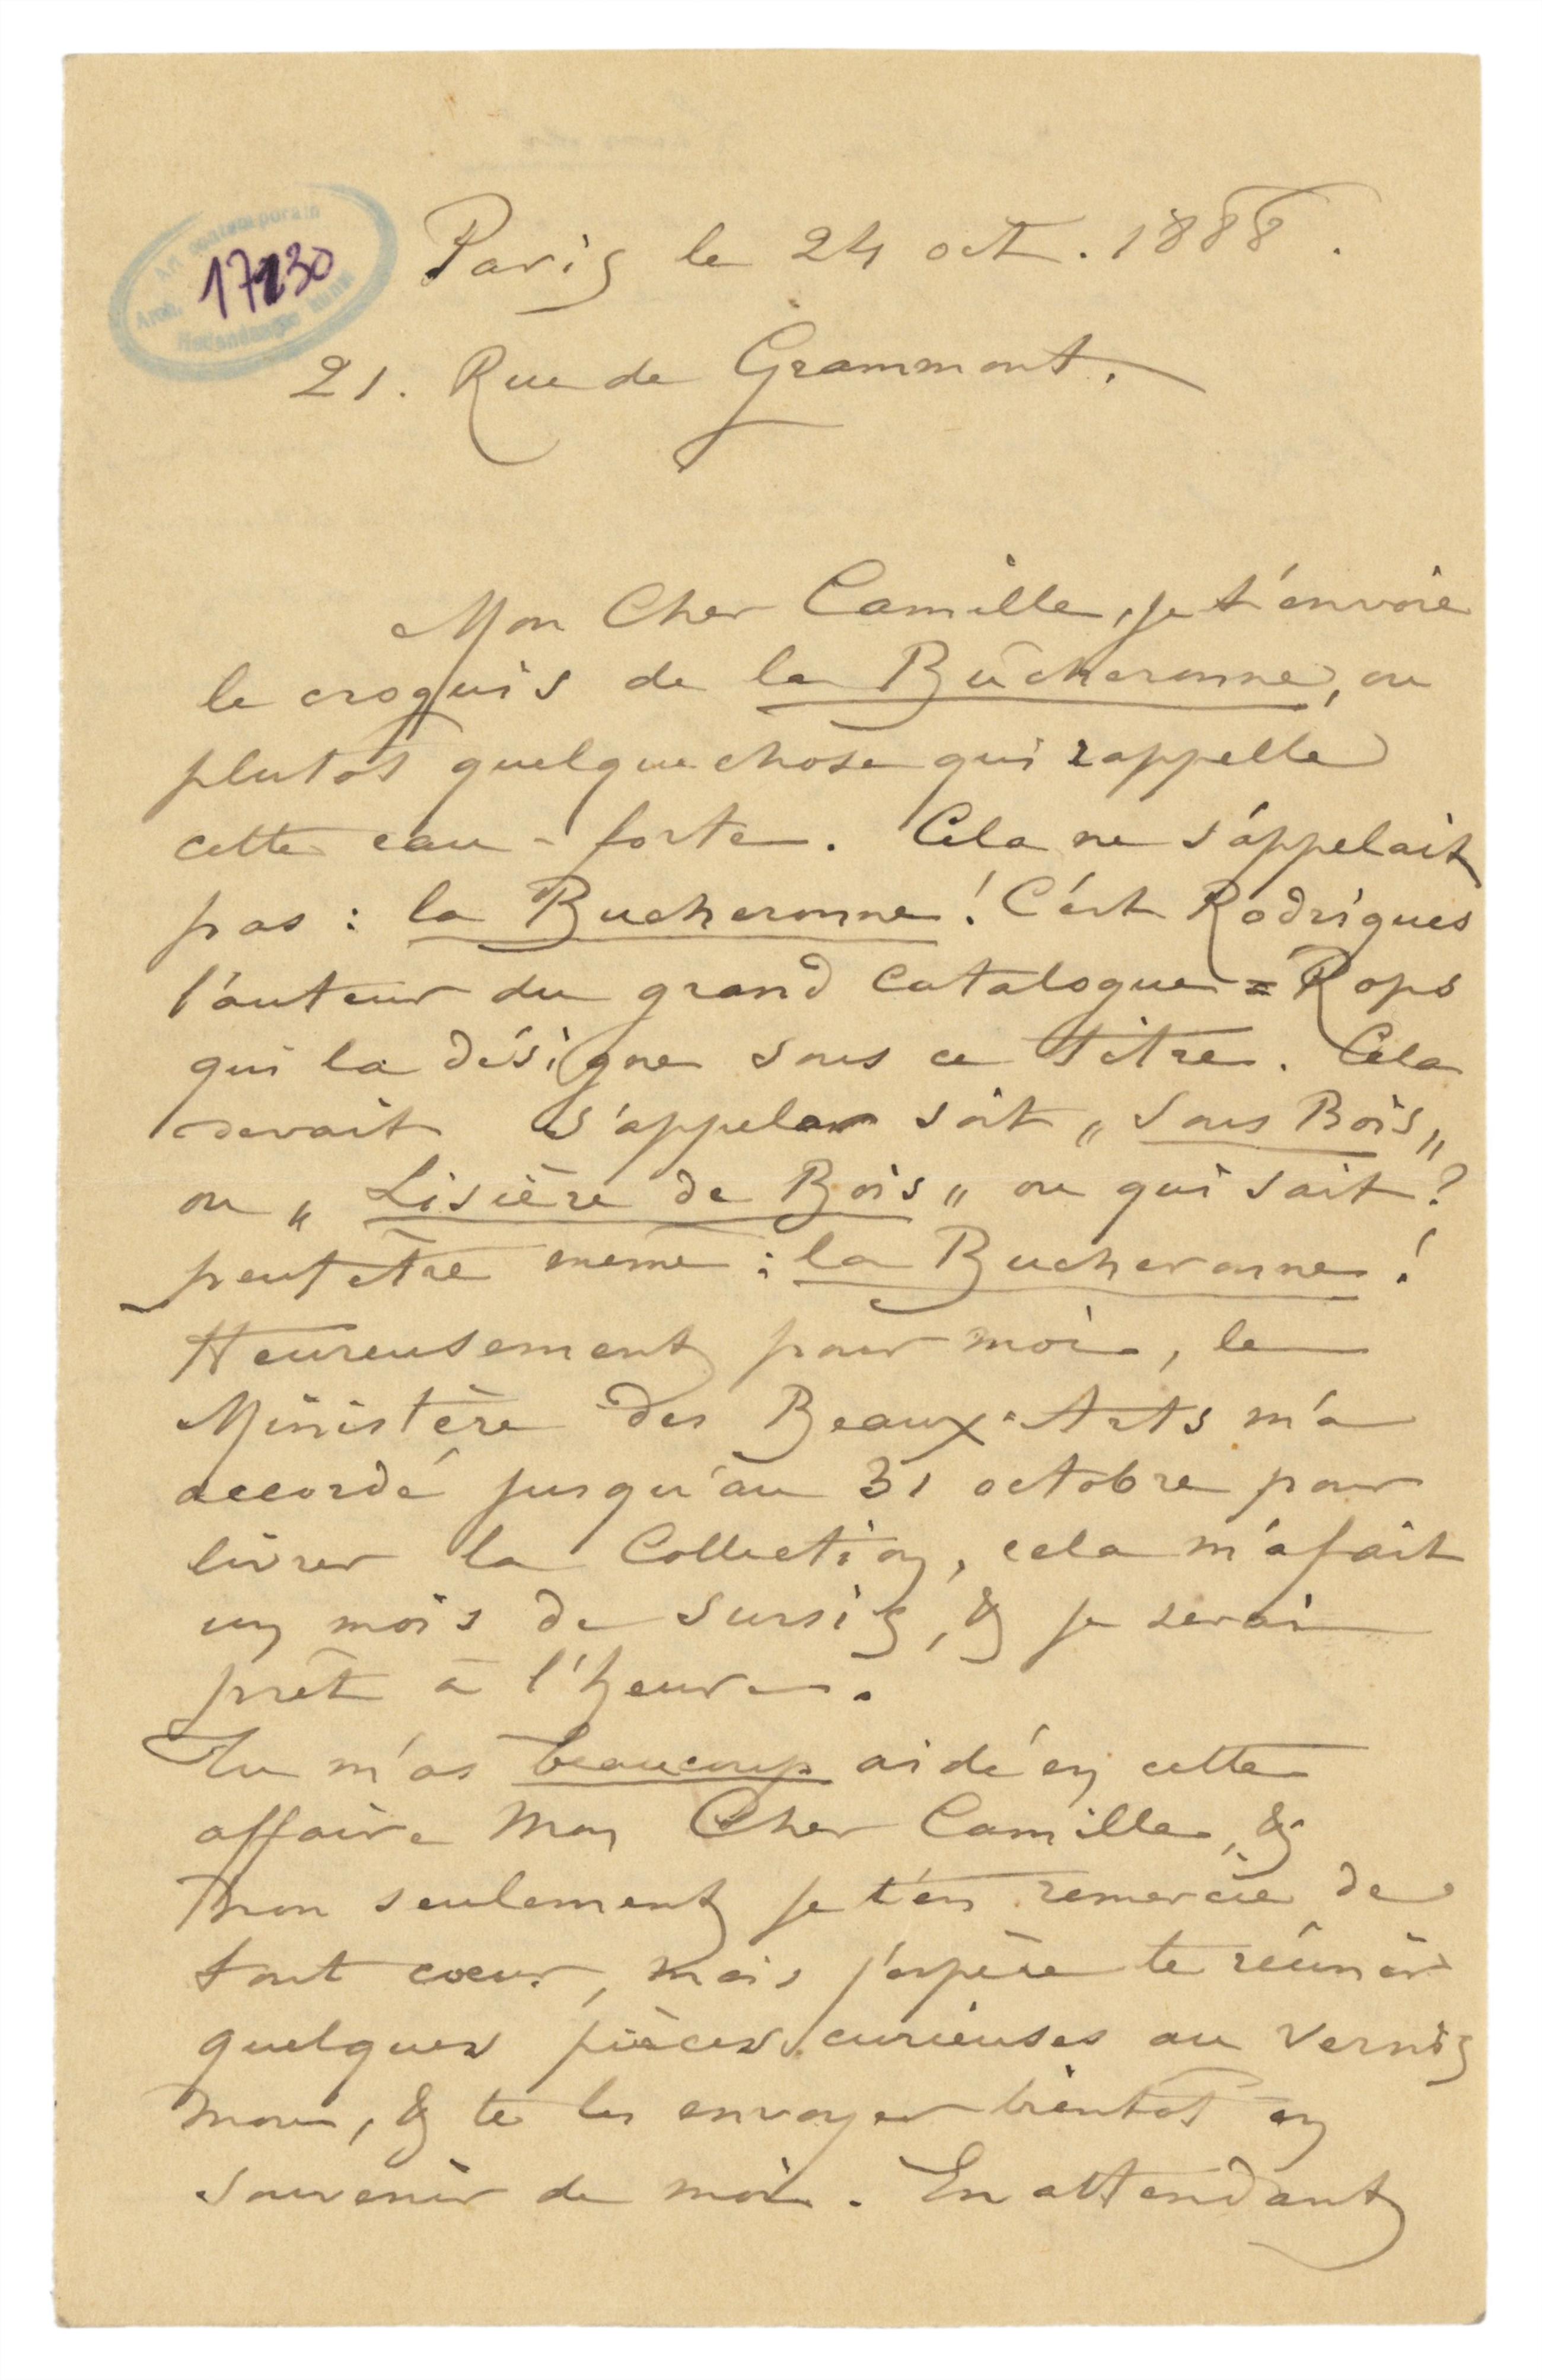 Art contemporain
17230
Paris le 24 oct. 1888.
21. Rue de Grammont.
Mon Cher Camille, je t'envoie
le croquis de la Bûcheronne, ou
plutot quelque chose qui rappelle
cette eau-forte. Cela ne s'appelait
pas : la Bucheronne ! C'est Rodrigues
l'auteur du grand Catalogue = Rops
qui la désigne sous ce titre. Cela
devait s'appeler soit „ Sous Bois „
ou „ Lisière de Bois „ ou qui sait ?
peut être meme : la Bucheronne !
Heureusement pour moi, le
Ministère des Beaux-Arts m'a
accordé jusqu'au 31 octobre pour
livrer la Collection, cela m'a fait
un mois de sursis, & je serai
prêt à l'heure.
Tu m'as beaucoup aidé en cette
affaire Mon Cher Camille, &
non seulement je t'en remercie de
tout coeur, mais j'espère te réunir
quelques pièces curieuses au vernis
mou, & te les envoyer bientot en
souvenir de moi. En attendant